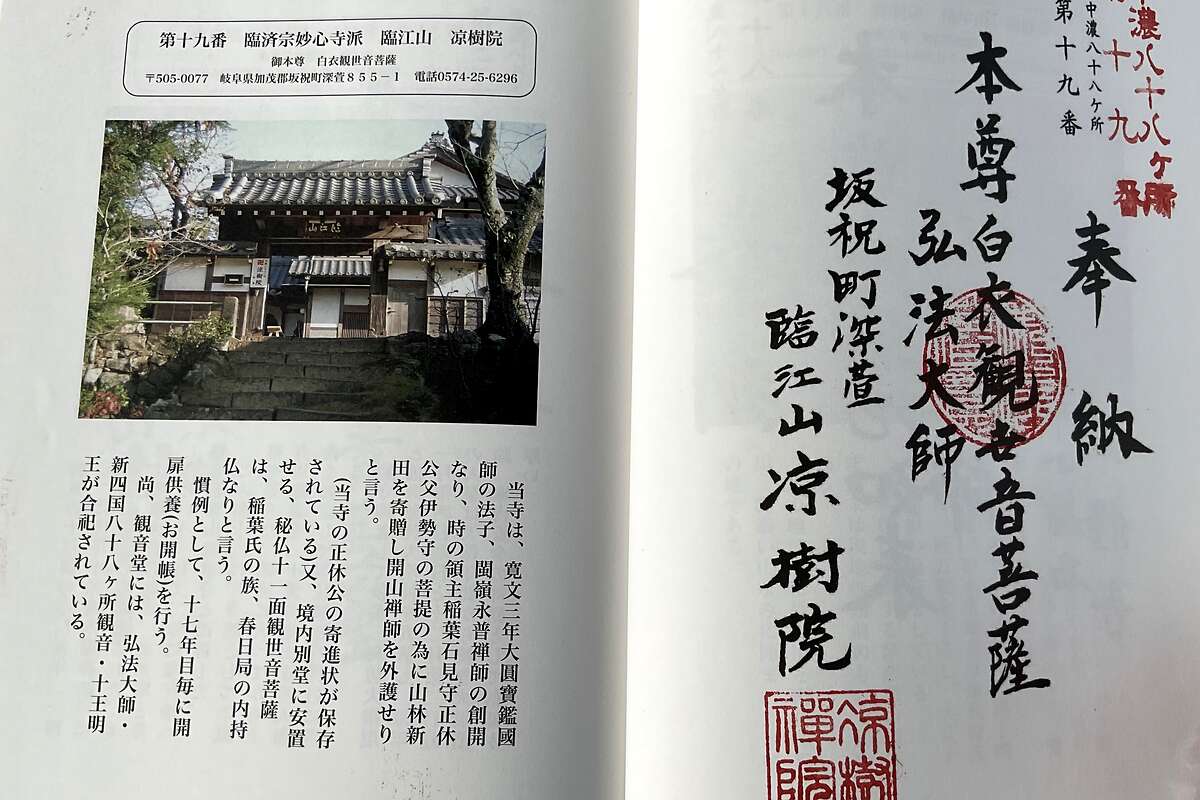 第十九番　臨済宗妙心寺派　臨江山　凉樹院
御本尊　白衣観世音菩薩
〒505-0077　岐阜県加茂郡坂祝町深萱８５５－１　電話0574-25-6296
臨江山
当寺は、寛文三年大圓寶鑑國
師の法子、閩嶺永普禅師の創開
なり、時の領主稲葉石見守正休
公父伊勢守の菩提の為に山林新
田を寄贈し開山禅師を外護せり
と言う。
(当寺の正休公の寄進状が保存
されている)又、境内別堂に安置
せる、秘仏十一面観世音菩薩
は、稲葉氏の族、春日局の内持
仏なりと言う。
慣例として、十七年目毎に開
扉供養(お開帳)を行う。
尚、観音堂には、弘法大師・
新四国八十八ヶ所観音・十王明
王が合祀されている。
中濃八十八ヶ所
十九番
中濃八十八ケ所
第十九番
奉納
本尊白衣観世音菩薩
弘法大師
坂祝町深萱
臨江山凉樹院
凉樹
禪院